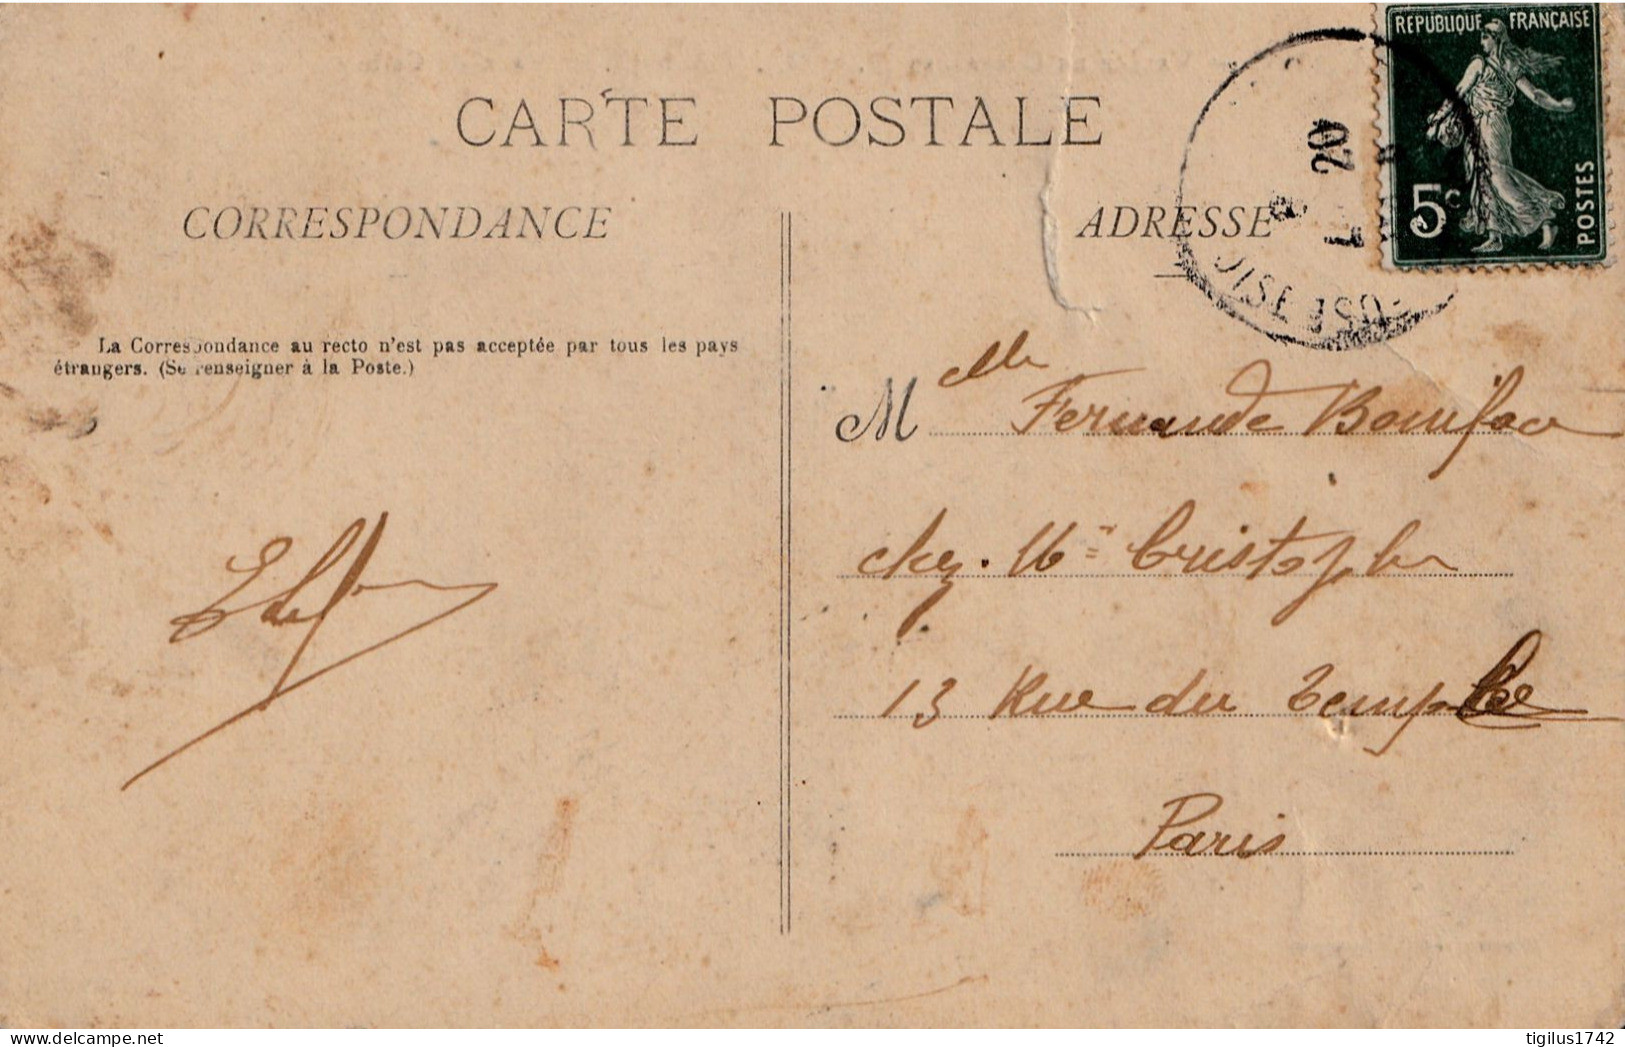 RÉPUBLIQUE FRANÇAISE
5c
POSTES
20
CARTE POSTALE
CORRESPONDANCE
ADRESSE
La Correspondance au recto n'est pas acceptée par tous les pays
étrangers. (Se renseigner à la Poste.)
Melle Fernande Boniface
chez Mr Cristophe
13 Rue du Temple
Paris
tigilus1742